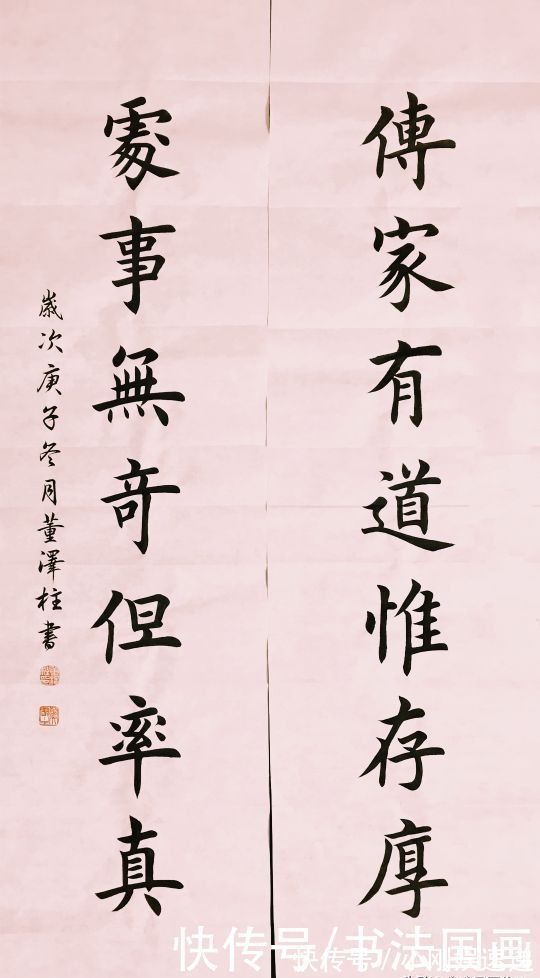 傳家有道惟存厚
處事無奇但率真
歲次庚子冬月董澤柱書
快传号/书法国画